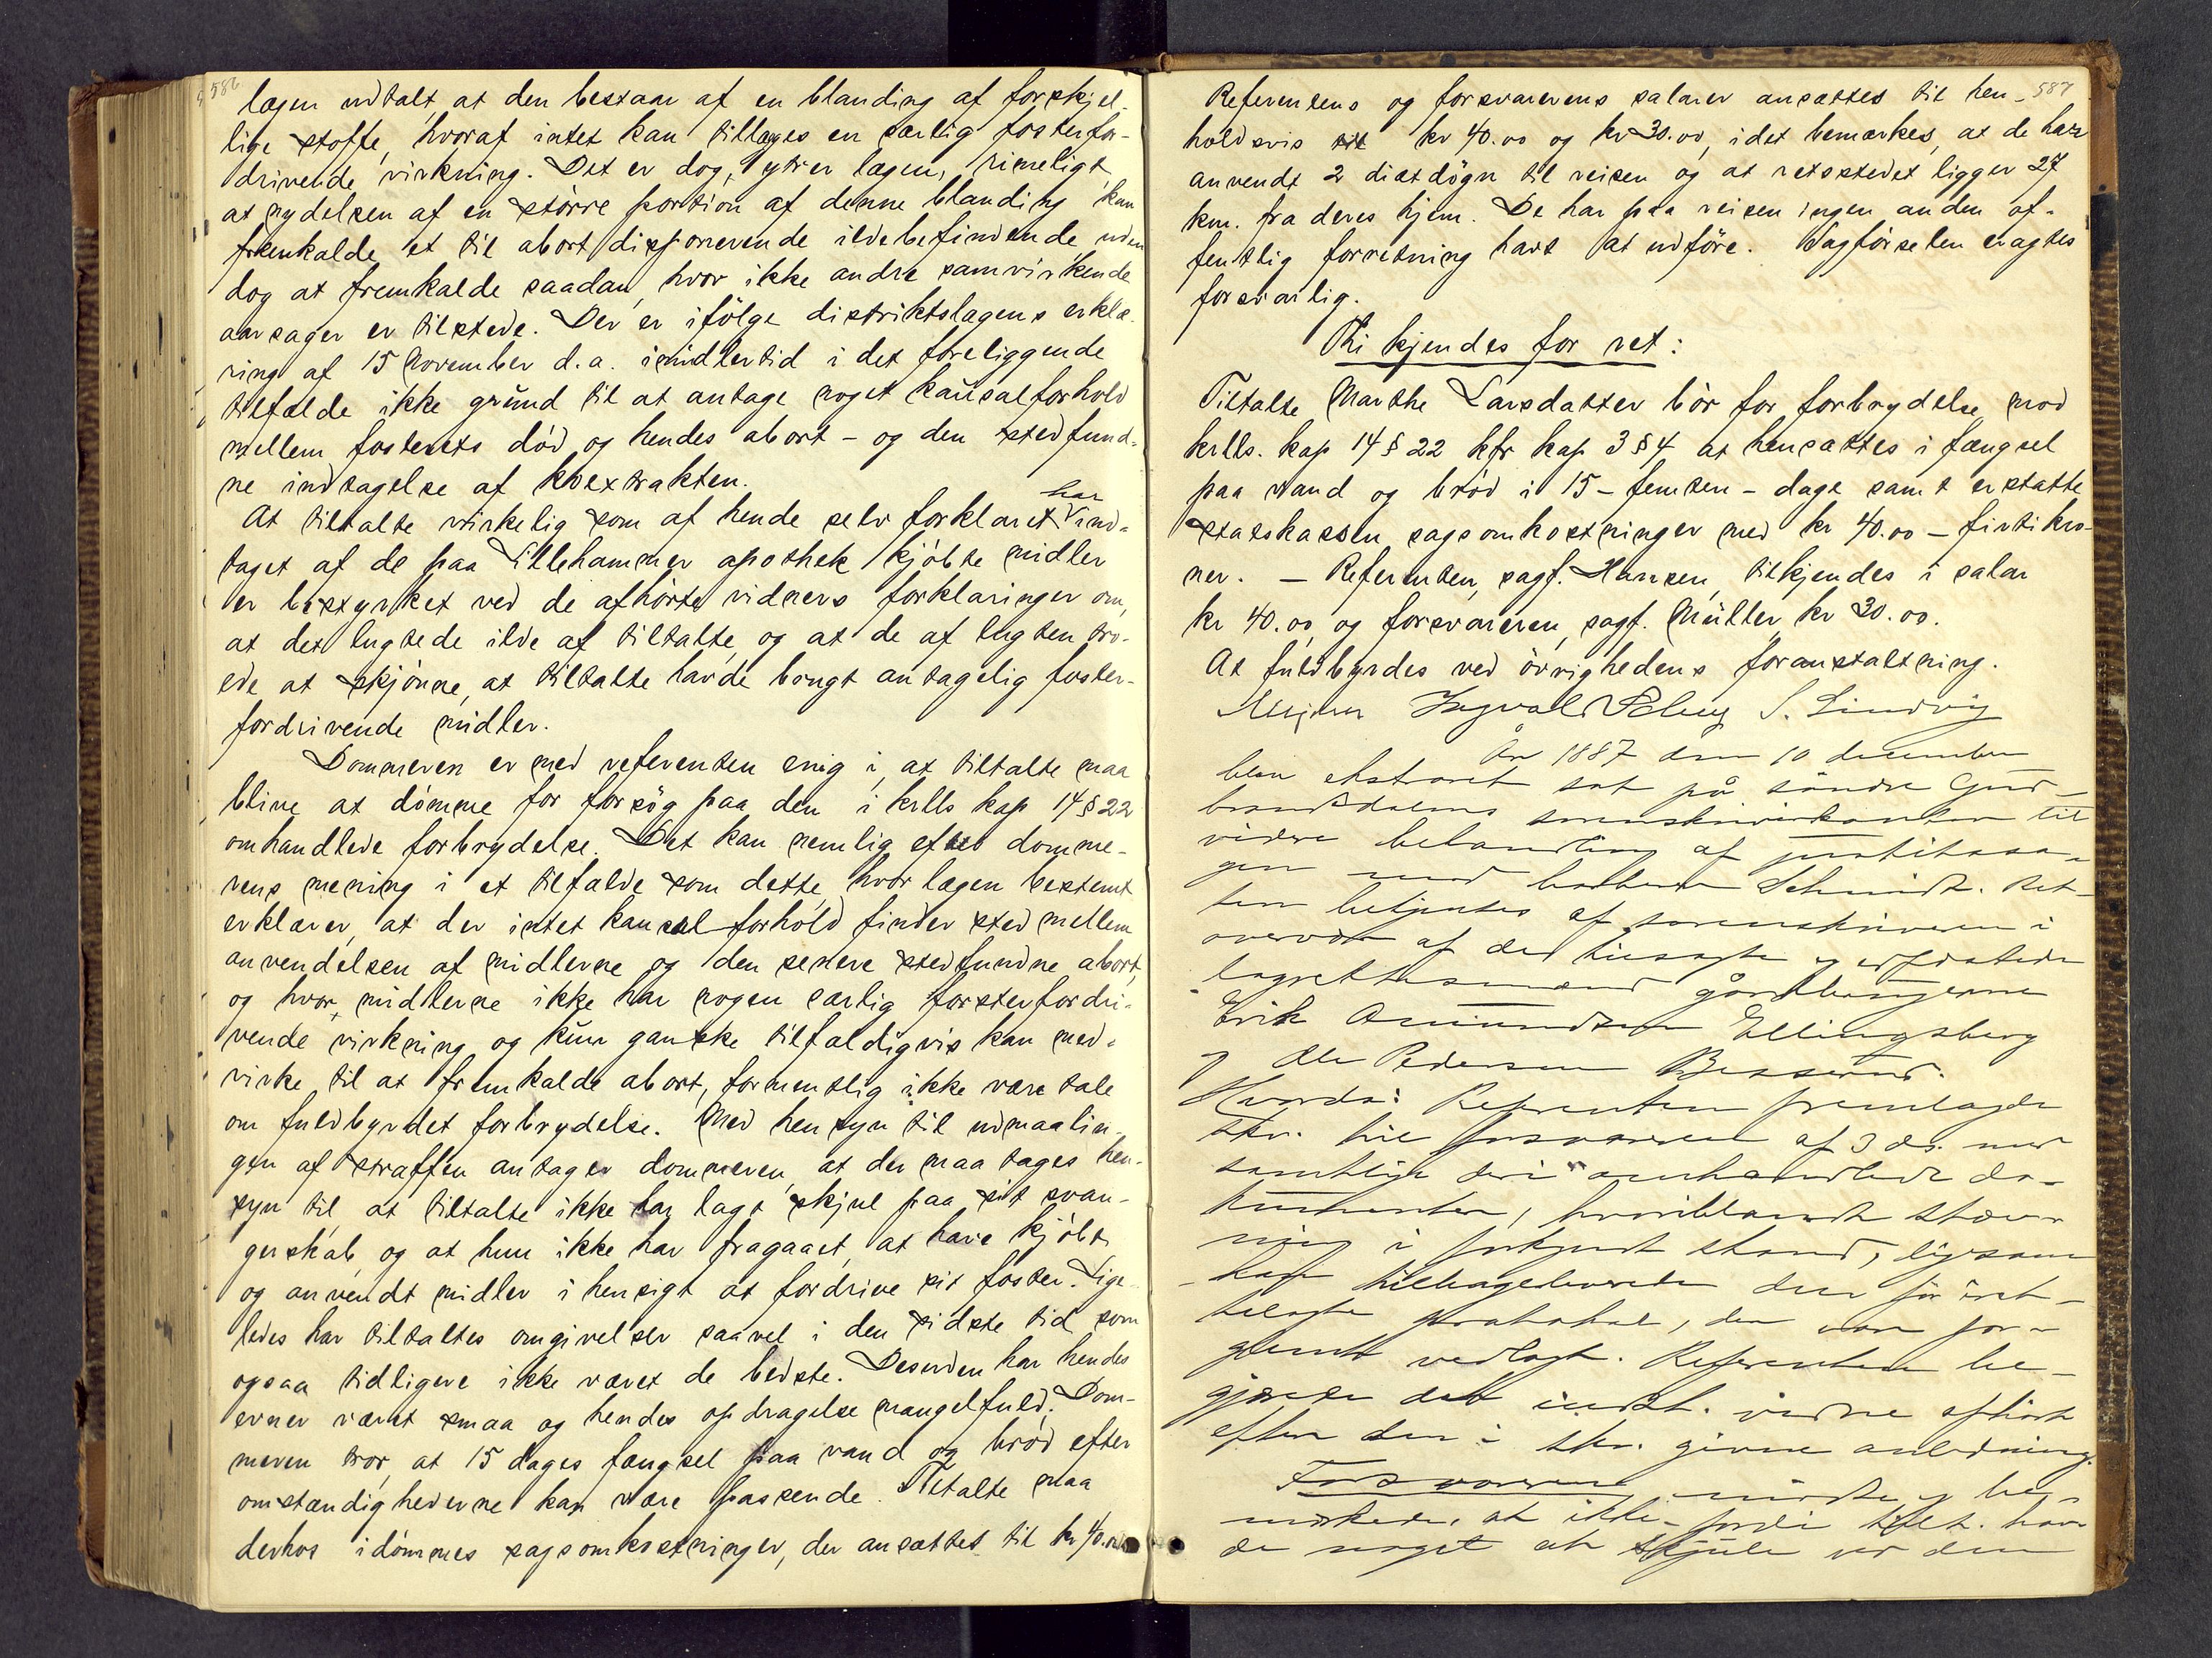 586
lægen udtalt, at den bestaar af en blanding af forskjel-
lige stoffe, hvoraf intet kan tillægges en særlig fosterfor-
drivende virkning. Det er dog, ytrer lægen, rimeligt,
at nydelsen af en større portion af denne blanding kan
fremkalde et til abort disponerende ildebefindende, uden
dog at fremkalde saadan, hvor ikke andre samvirkende
aarsager er tilstede. Der er ifölge distriktslægens erklæ-
ring af 15 November d.a. imidlertid i det foreliggende
tilfælde ikke grund til at antage noget kausalforhold
mellem fosterets död og hendes abort - og den stedfund-
ne indtagelse af
At tiltalte virkelig som af hende selv forklaret har ind-
taget af de paa Lillehammer apothek kjöbte midler
er bestyrket ved de afhörte vidners forklaringer om,
at det lugtede ilde af tiltalte, og at de af lugten tro-
ede at skjönne, at tiltalte havde brugt antagelig foster-
fordrivende midler.
Dommeren er med referenten enig i, at tiltalte maa
blive at dömme for forsög paa den i krlls kap 14 § 22
omhandlede forbrydelse. Det kan nemlig efter domme-
rens mening i et tilfælde som dette, hvor lægen bestemt
erklærer, at der intet kausalforhold finder sted mellem
anvendelsen af midlerne og den senere stedfundne abort,
og hvor midlerne ikke har nogen særlig forsterfordri-
vende virkning og kun ganske tilfældigvis kan med-
virke til at fremkalde abort, formentlig ikke være tale
om fuldbyrdet forbrydelse. Med hensyn til udmaalin-
gen af straffen antager dommeren, at der maa tages hen-
syn til, at tiltalte ikke har lagt skjul paa sit svan-
gerskab, og at hun ikke har fragaaet, at have kjöbt
og anvendt midler i hensigt at fordrive sit foster. Lige-
ledes har tiltaltes omgivelser saavel i den sidste tid som
ogsaa tidligere ikke været de bedste. Desuden har hendes
evner været smaa og hendes opdragelse mangelfuld. Dom-
meren tror, at 15 dages fængsel paa vand og bröd efter
omstændighederne kan være passende. Tiltalte maa
derhos idömmes sagsomkostninger, der ansættes til kr 40.00
587
Referentens og forsvarerens salarer ansættes til hen-
holdsvis kr 40.00 og kr 30.00, idet bemærkes, at de har
anvendt 2 diætdögn til reisen og at retsstedet ligger 27
km. fra deres hjem. De har paa reisen ingen anden of-
fentlig forretning havt at udföre. Sagförselen eragtes
forsvarlig.
Thi kjendes for ret:
Tiltalte Marthe Larsdatter bör for forbrydelse mod
krlls. kap 14 § 22 kfr kap 3 § 4 at hensættes i fængsel
paa vand og bröd i 15 - femten - dage samt erstatte
statskassen sagsomkostninger med kr 40.00 - firti kro-
ner. - Referenten, sagf. Hansen, tilkjendes i salar
kr 40.00 og forsvareren, sagf. Müller, kr 30.00.
At fuldbyrdes ved övrighedens foranstaltning.
Ingvald S. Lindvig
År 1887 den 10 december
blev ekstraret sat på söndre Gud-
brandsdalens sorenskriverkontor til
videre behandling af justitssa-
gen mod Schmidt. Ret-
ten betjentes af sorenskriveren i
overvær af de tilsagte og edfæstede
lagrettesmænd gårdbrugerne
Erik Amundsen Ellingsberg
og Ole Pedersen
Hvorda: Referenten fremlagde
skr. til forsvareren af 3 ds. med
samtlige deri omhandlede do-
kumenter, hvoriblandt stæv-
ning i forkyndt stand, ligesom
han tilbageleverede den för
protokol, der var for-
glemt vedlagt. Referenten be-
gjærede det indst. vidne afhört
efter den i skr. givne anledning.
Forsvareren mödte og be-
mærkede, at ikke fordi tilt. hav-
de noget at skjule ved den